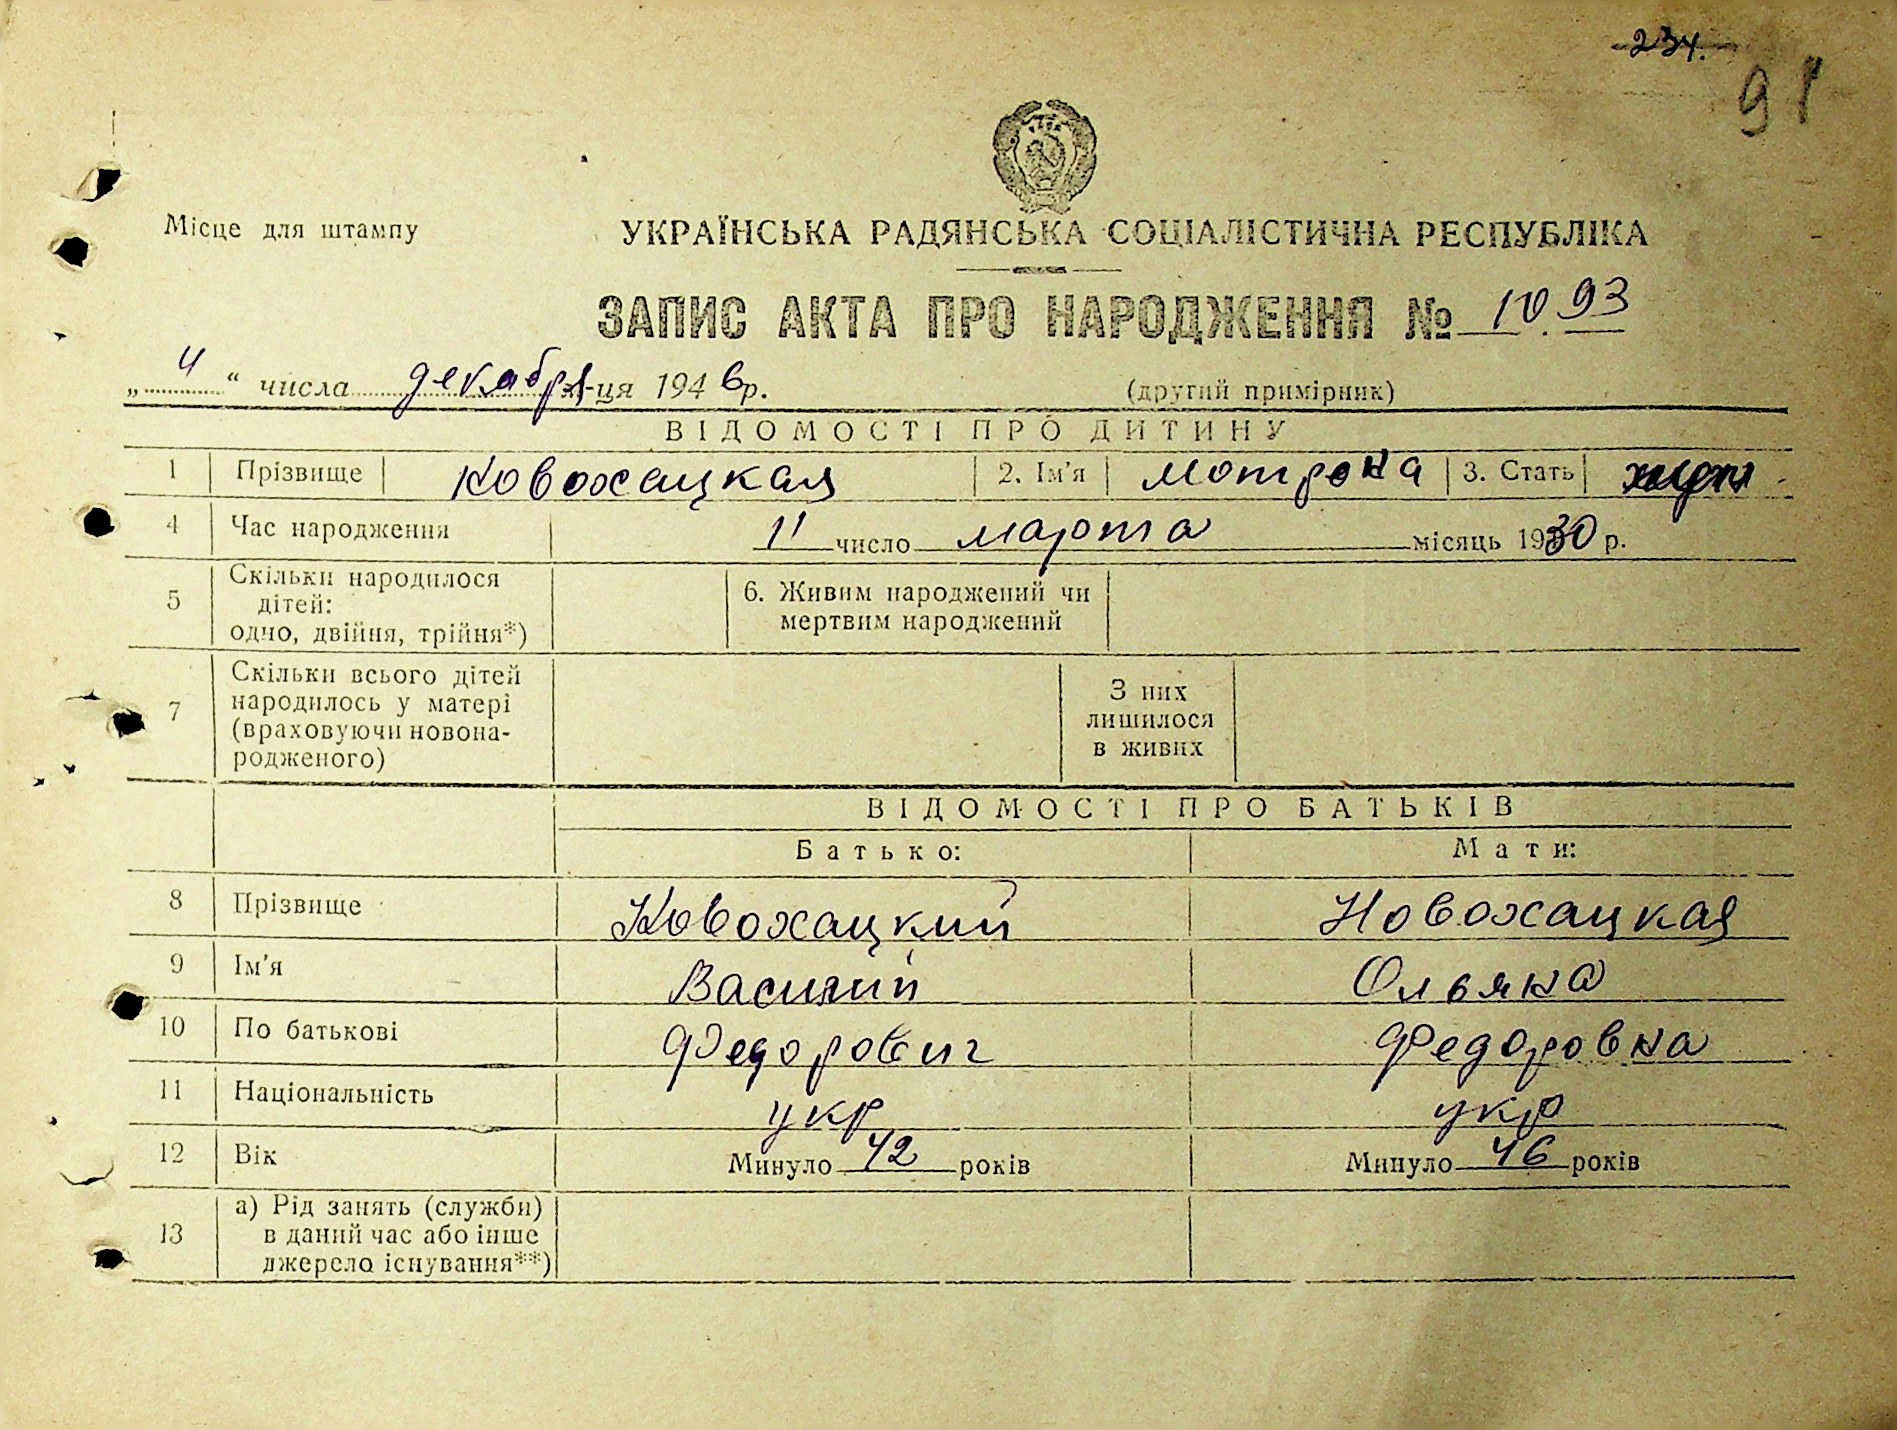 234.
91
Місце для штампу
УКРАЇНСЬКА РАДЯНСЬКА СОЦІАЛІСТИЧНА РЕСПУБЛІКА
ЗАПИС АКТА ПРО НАРОДЖЕННЯ № 1093
„ 4 “ числа декабря-ця 1946р.
(другий примірник)
ВІДОМОСТІ ПРО ДИТИНУ
1 Прізвище Новохацкая 2. Ім'я Мотрона 3. Стать
4 Час народження 11 число марта місяць 1930 р.
5 Скільки народилося
дітей:
одно, двійня, трійня*)
6. Живим народжений чи
мертвим народжений
7 Скільки всього дітей
народилось у матері
(враховуючи новона-
родженого)
З них
лишилося
в живих
ВІДОМОСТІ ПРО БАТЬКІВ
Батько: Мати:
8 Прізвище Новохацкий Новохацкая
9 Ім'я Василий Ольяна
10 По батькові Федорович Федоровна
11 Національність укр укр
12 Вік Минуло 42 років Минуло 46 років
13 а) Рід занять (служби)
в даний час або інше
джерело існування**)